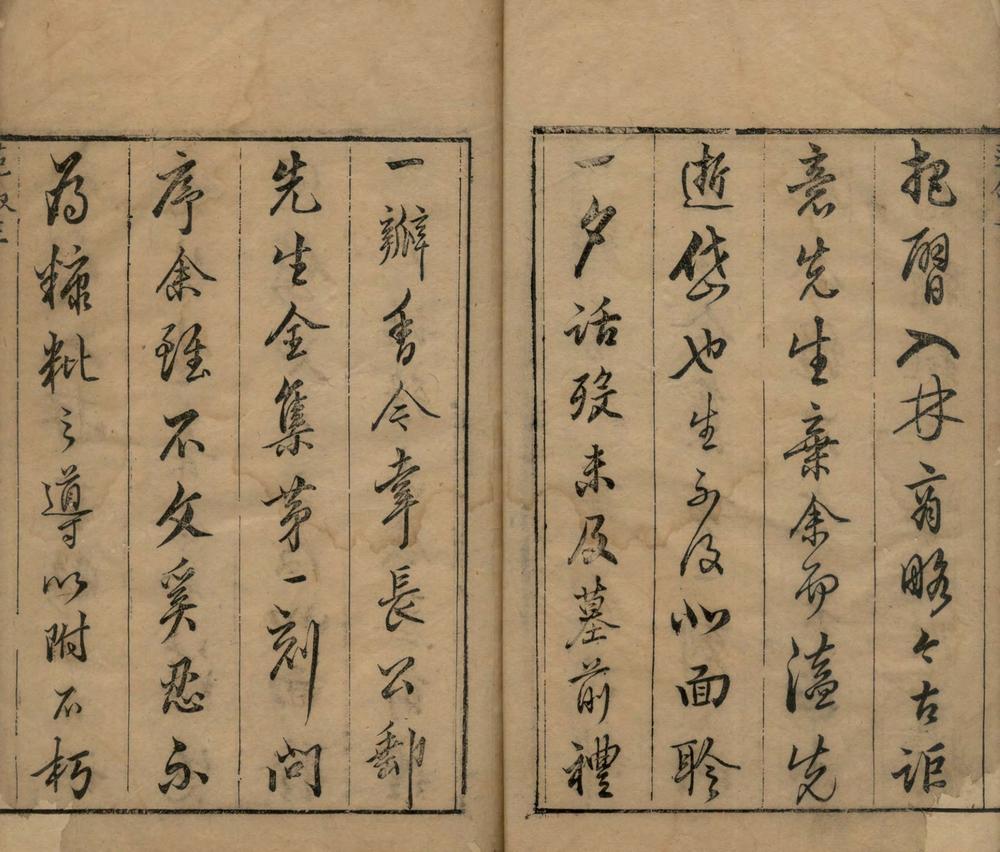 把臂入林商略今古詎
意先生棄余而溘先
逝岱也生不及北面聆
一夕話歿未及墓前禮
一瓣香今幸長公郵
先生全集第一刻問
序余雖不文奚忍不
為糠粃之導以附不朽